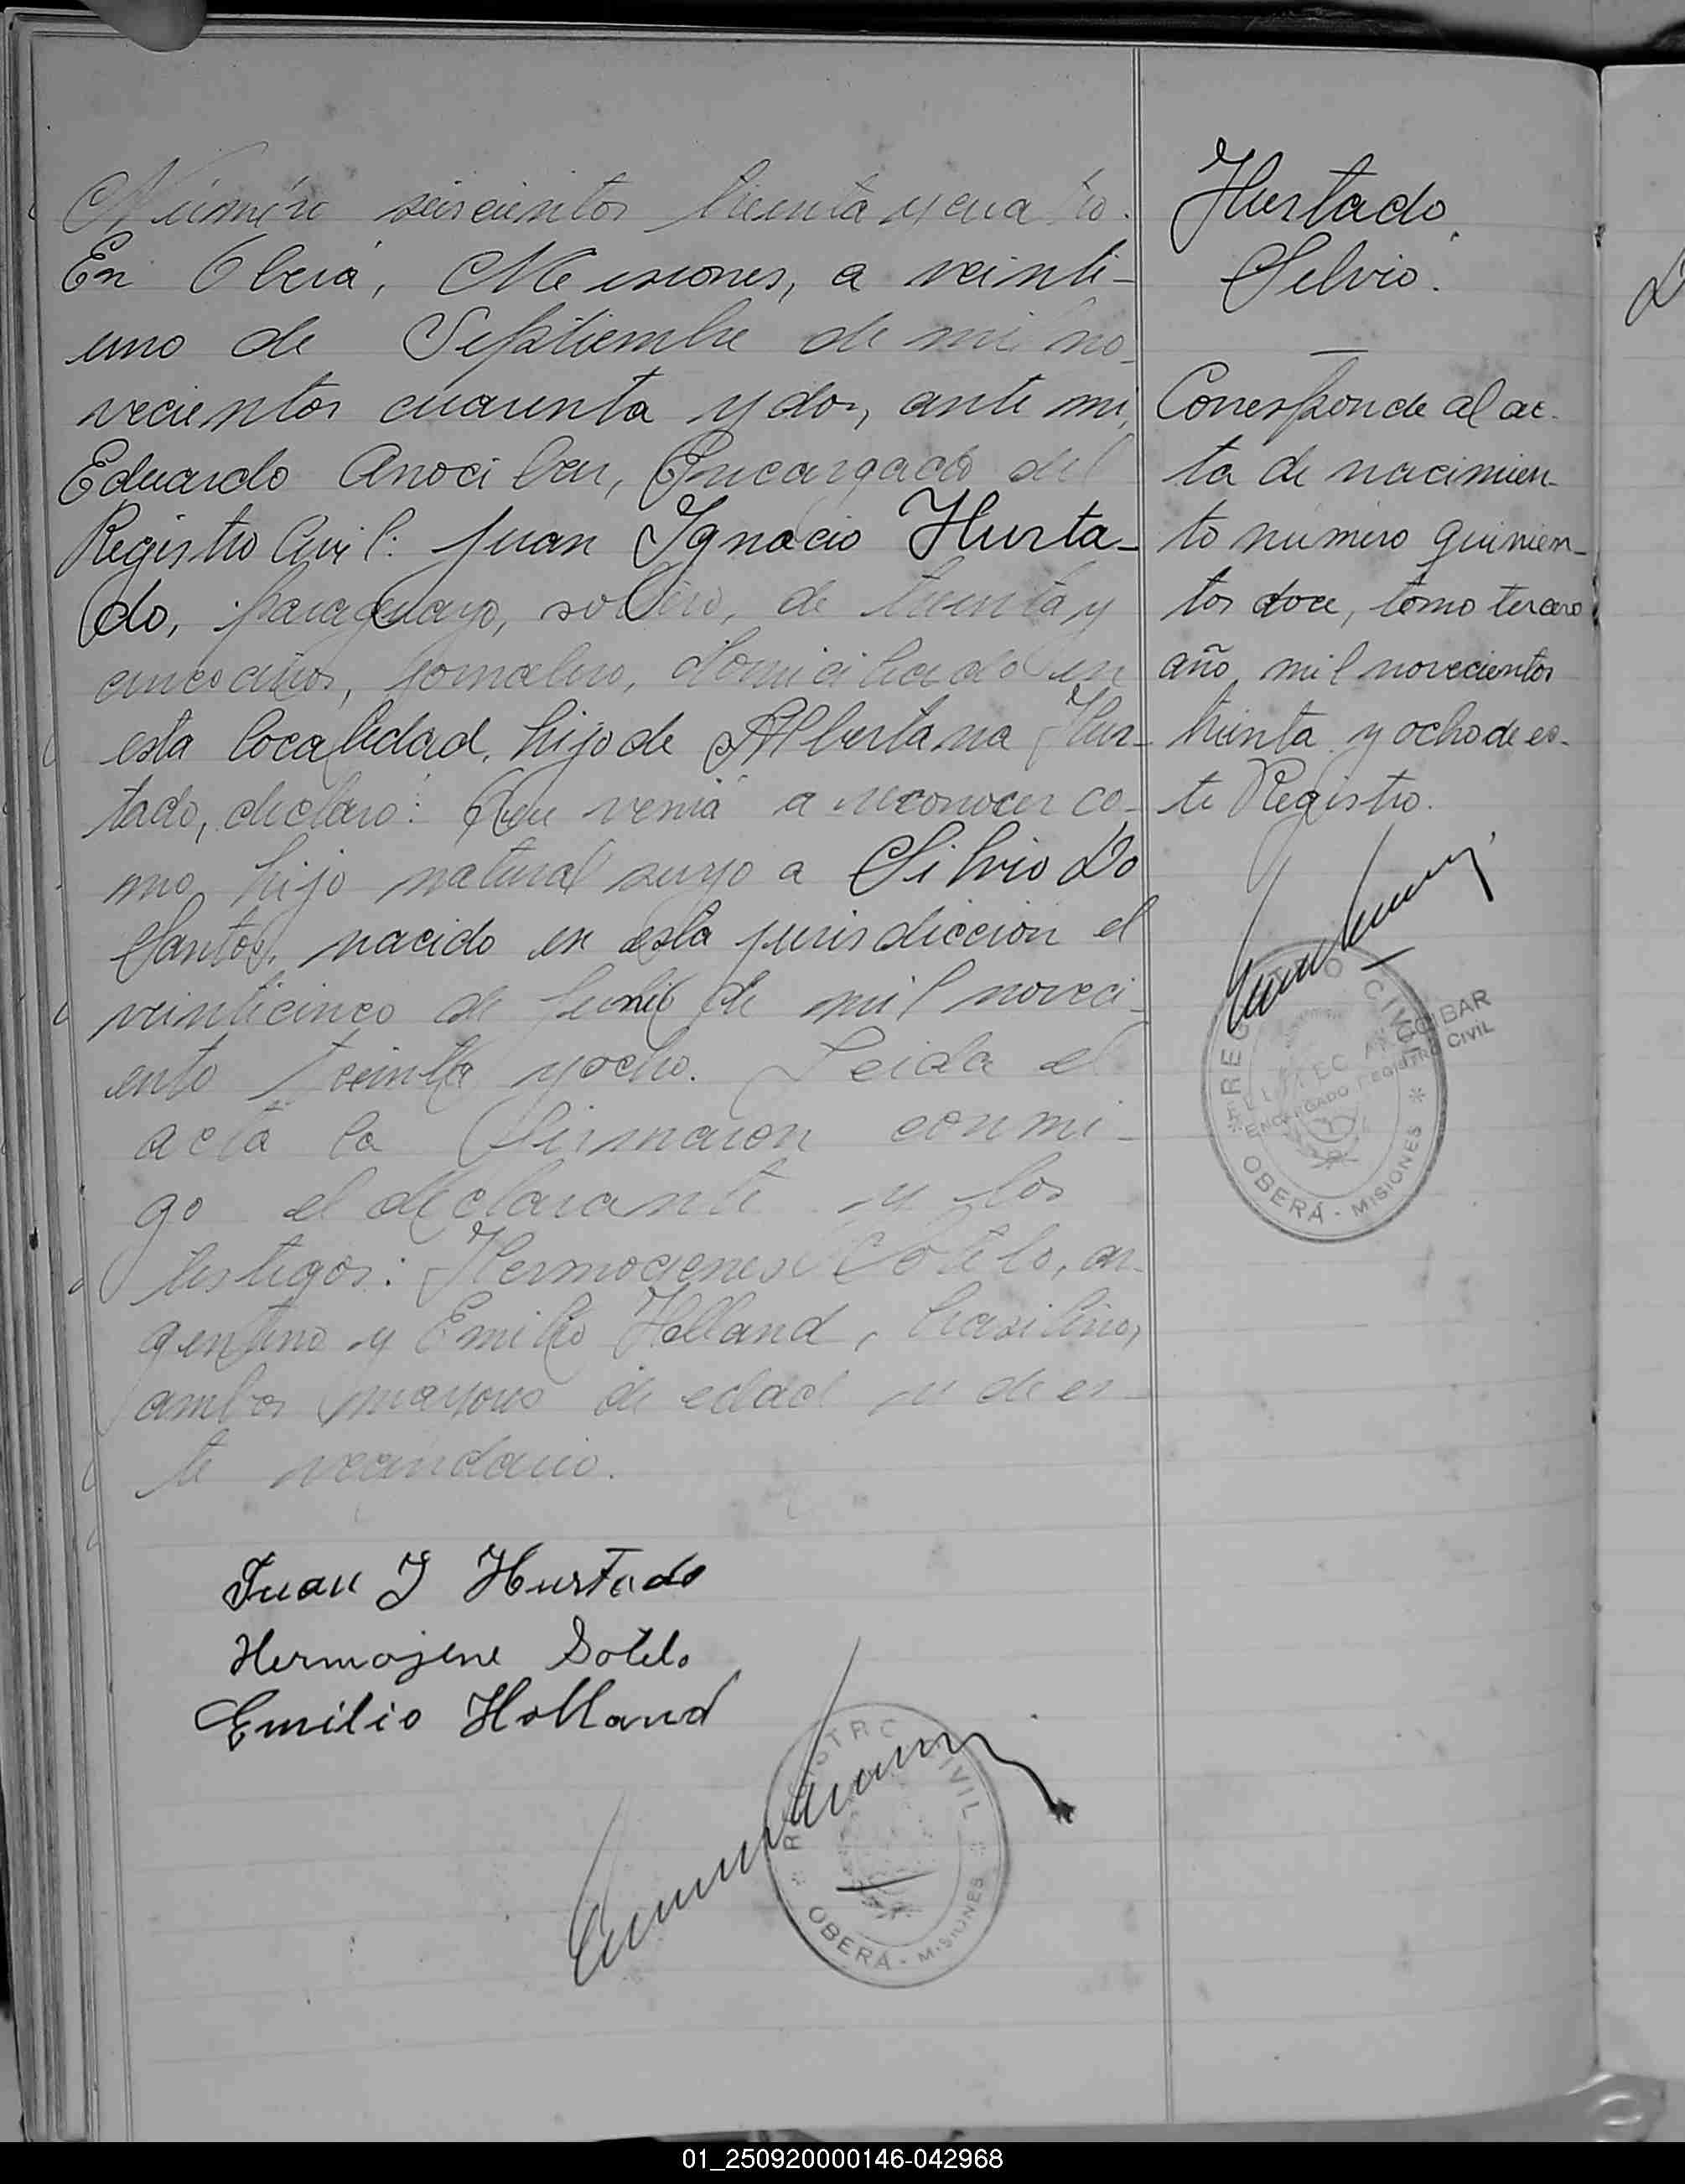 Número seiscientos treinta y cuatro.
En Oberá, Misiones, a veinti-
uno de Septiembre de mil no-
vecientos cuarenta y dos, ante mi,
Eduardo Anocibar, Encargado del
Registro Civil: Juan Ignacio Hurta-
do, paraguayo, soltero, de treinta y
cinco años, jornalero, domiciliado en
esta localidad, hijo de Albertana Hur-
tado, declaro: Que venia a reconocer co-
mo hijo natural suyo a Silvio Do
Santos, nacido en esta jurisdiccion el
veinticinco de de mil noveci-
ento treinta y ocho. Leida el
acta la firmaron conmi-
go el declarante y los
testigos: Hermogenes Sotelo, ar-
gentino y Emilio Holland, brasilero,
ambos mayores de edad y de es-
te vecindario.
Juan I Hurtado
Hermojene Sotelo
Emilio Holland
REGISTRO CIVIL
OBERÁ - MISIONES
Hurtado,
Silvio.
Corresponde al ac-
ta de nacimien-
to número quinien-
tos doce, tomo tercero
año mil novecientos
treinta y ocho de es-
te Registro.
REGISTRO CIVIL
ENCARGADO REGISTRO CIVIL
OBERÁ - MISIONES
01_250920000146-042968